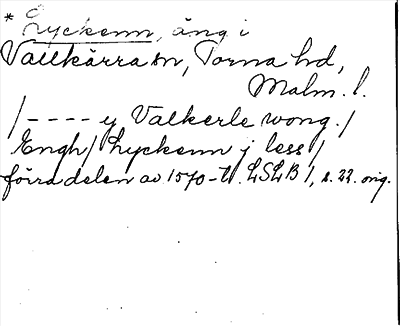 * Lyckenn, äng i
Vallkärra sn, Torna hd,
Malm. l.
/---- y Valkerle wong./
Engh/ Lyckenn j less/
förra delen av 1570-t. LSLB 1, s. 22. orig.